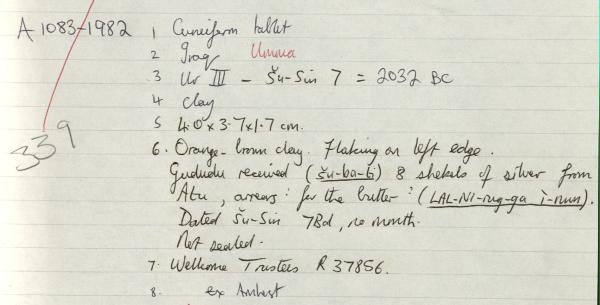 A 1083-1982 1 Cuneiform tablet
2 Iraq Umma
3 Ur III - Šu-Sin 7 = 2032 BC
4 clay
339
5 4.0 x 3.7 x 1.7 cm.
6. Orange-brown clay. Flaking on left edge.
Gududu received (šu-ba-ti) 8 shekels of silver from
Atu, arrears: for the butter: (LAL-NI-rug-ga ì-nun).
Dated Šu-Sin 7Bd, no month.
Not sealed.
7. Wellcome Trustees R 37856.
8. ex Amherst